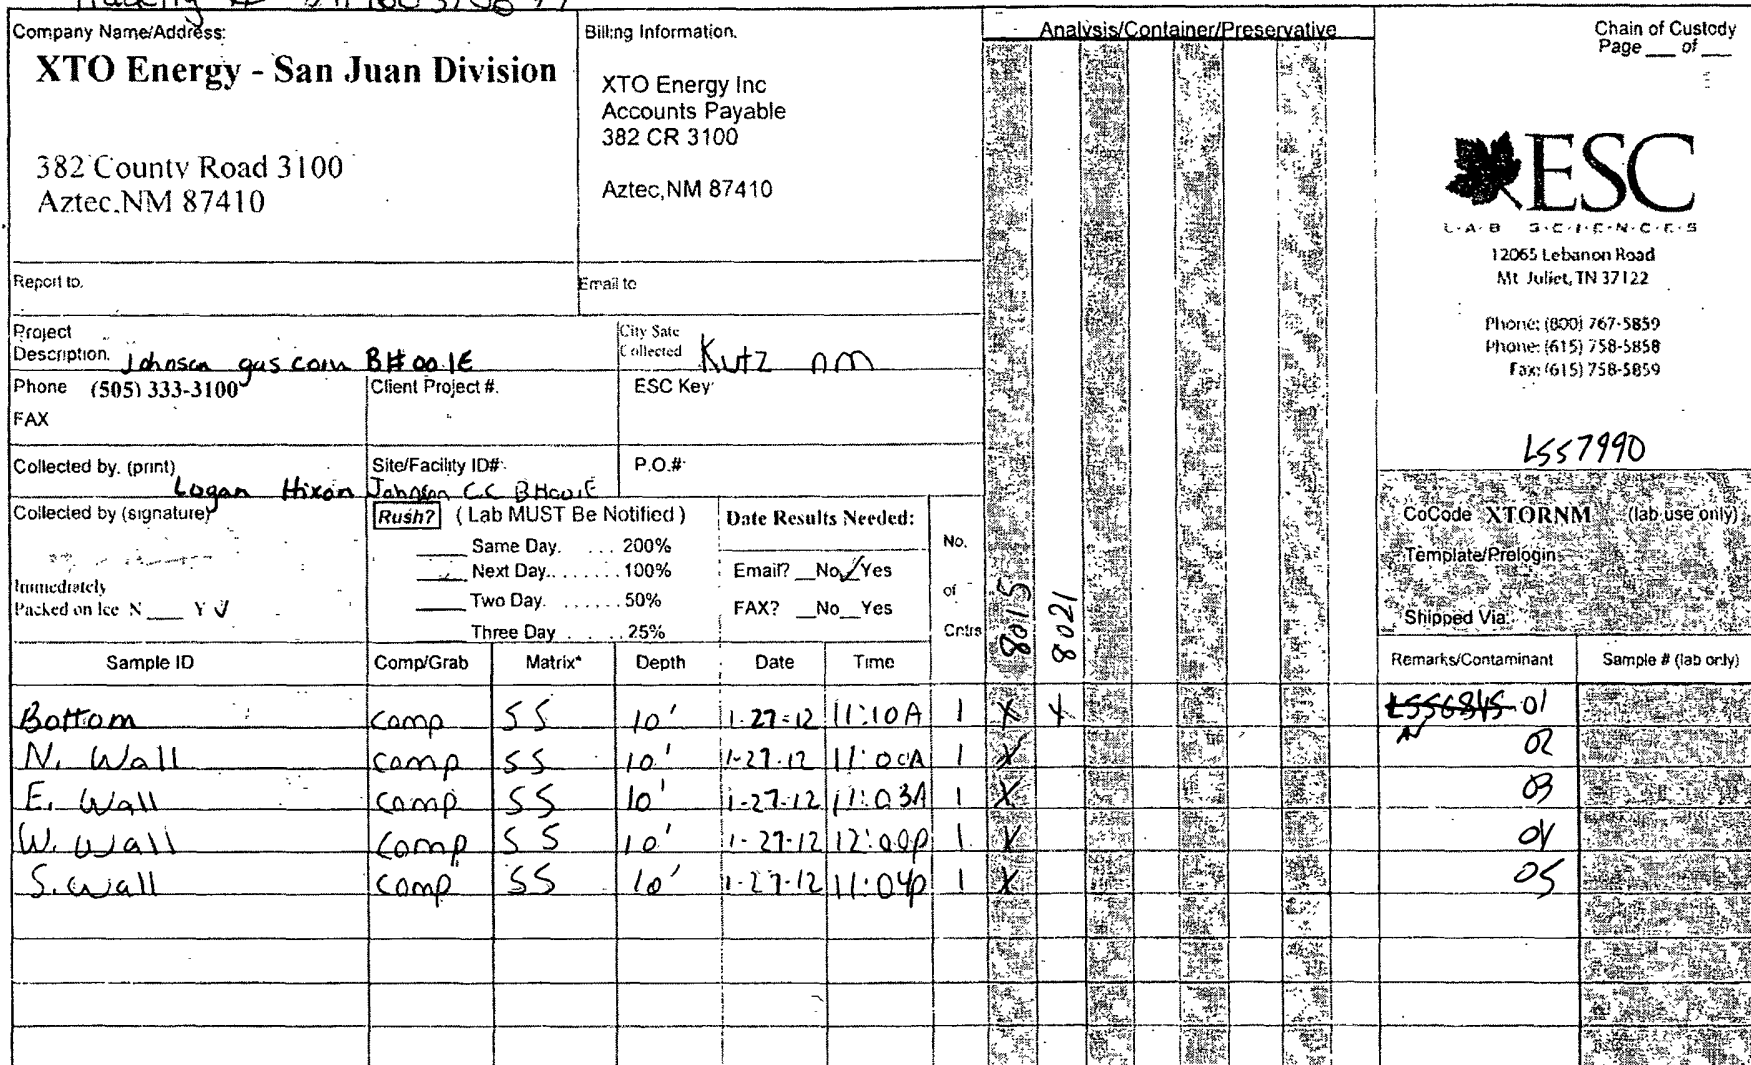 Company Name/Address:
XTO Energy - San Juan Division
382 County Road 3100
Aztec, NM 87410
Billing Information.
XTO Energy Inc
Accounts Payable
382 CR 3100
Aztec, NM 87410
Analysis/Container/Preservative
Chain of Custody
Page ___ of ___
ESC
L·A·B S·C·I·E·N·C·E·S
12065 Lebanon Road
Mt Juliet, TN 37122
Phone: (800) 767-5859
Phone: (615) 758-5858
Fax: (615) 758-5859
Report to.
Email to
Project
Description. Johnson gas com B#001E
City Sate
Collected Kutz nm
Phone (505) 333-3100
Client Project #.
ESC Key
FAX
L557990
Collected by. (print) Logan Hixon
Site/Facility ID#. Johnson
P.O.#
Collected by (signature)
Rush? (Lab MUST Be Notified)
Same Day. ... 200%
Next Day....... 100%
Two Day. ...... 50%
Three Day ..... 25%
Date Results Needed:
Email? __No ✓ Yes
FAX? __No__Yes
No.
of
Cntrs
8015
8021
CoCode XTORNM (lab use only)
Template/Prelogin
Shipped Via:
Immediately
Packed on Ice N ___ Y ✓
Sample ID Comp/Grab Matrix* Depth Date Time Remarks/Contaminant Sample # (lab only)
Bottom Comp SS 10' 1-27-12 11:10A 1 X X L556845 01
N. Wall Comp SS 10' 1-27-12 11:00A 1 X 02
E. Wall Comp SS 10' 1-27-12 11:03A 1 X 03
W. Wall Comp SS 10' 1-27-12 12:00p 1 X 04
S. Wall Comp SS 10' 1-27-12 11:04p 1 X 05